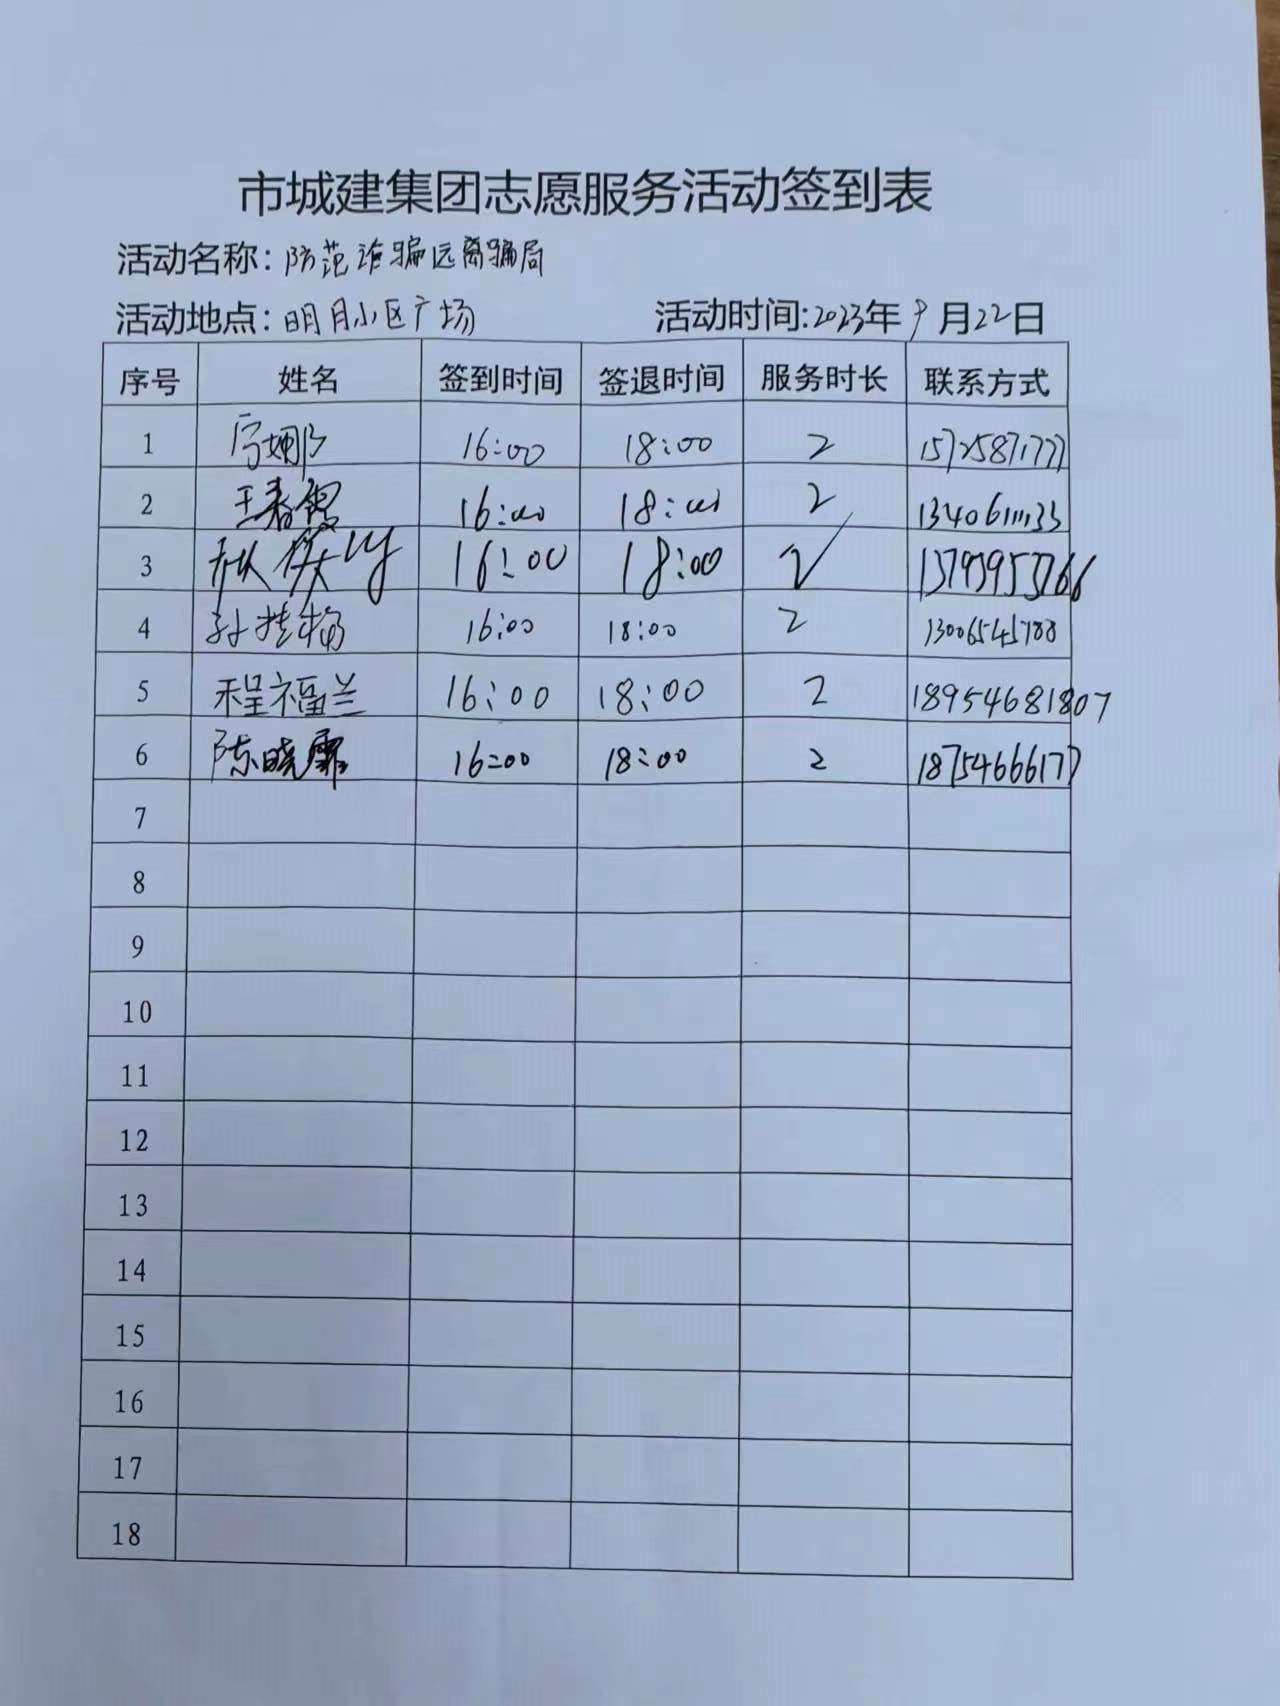 市城建集团志愿服务活动签到表
活动名称：防范诈骗远离骗局
活动地点：明月小区广场 活动时间:2023年9月22日
序号 姓名 签到时间 签退时间 服务时长 联系方式
1 16:00 18:00 2
2 王春霞 16:00 18:00 2 13406111133
3 16:00 18:00 2
4 16:00 18:00 2 13006545788
5 程福兰 16:00 18:00 2 18954681807
6 陈晓霏 16:00 18:00 2 18754666177
7
8
9
10
11
12
13
14
15
16
17
18